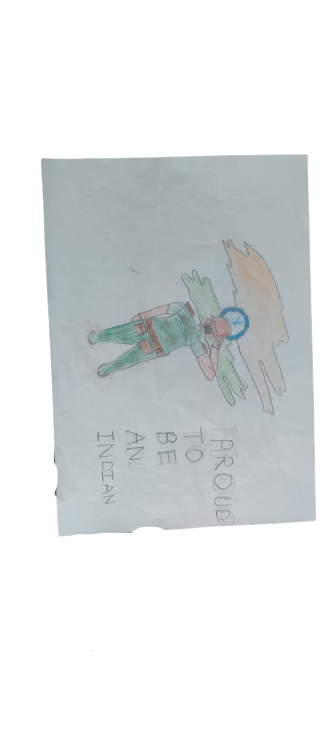 PROUD
TO
BE
AN
INDIAN